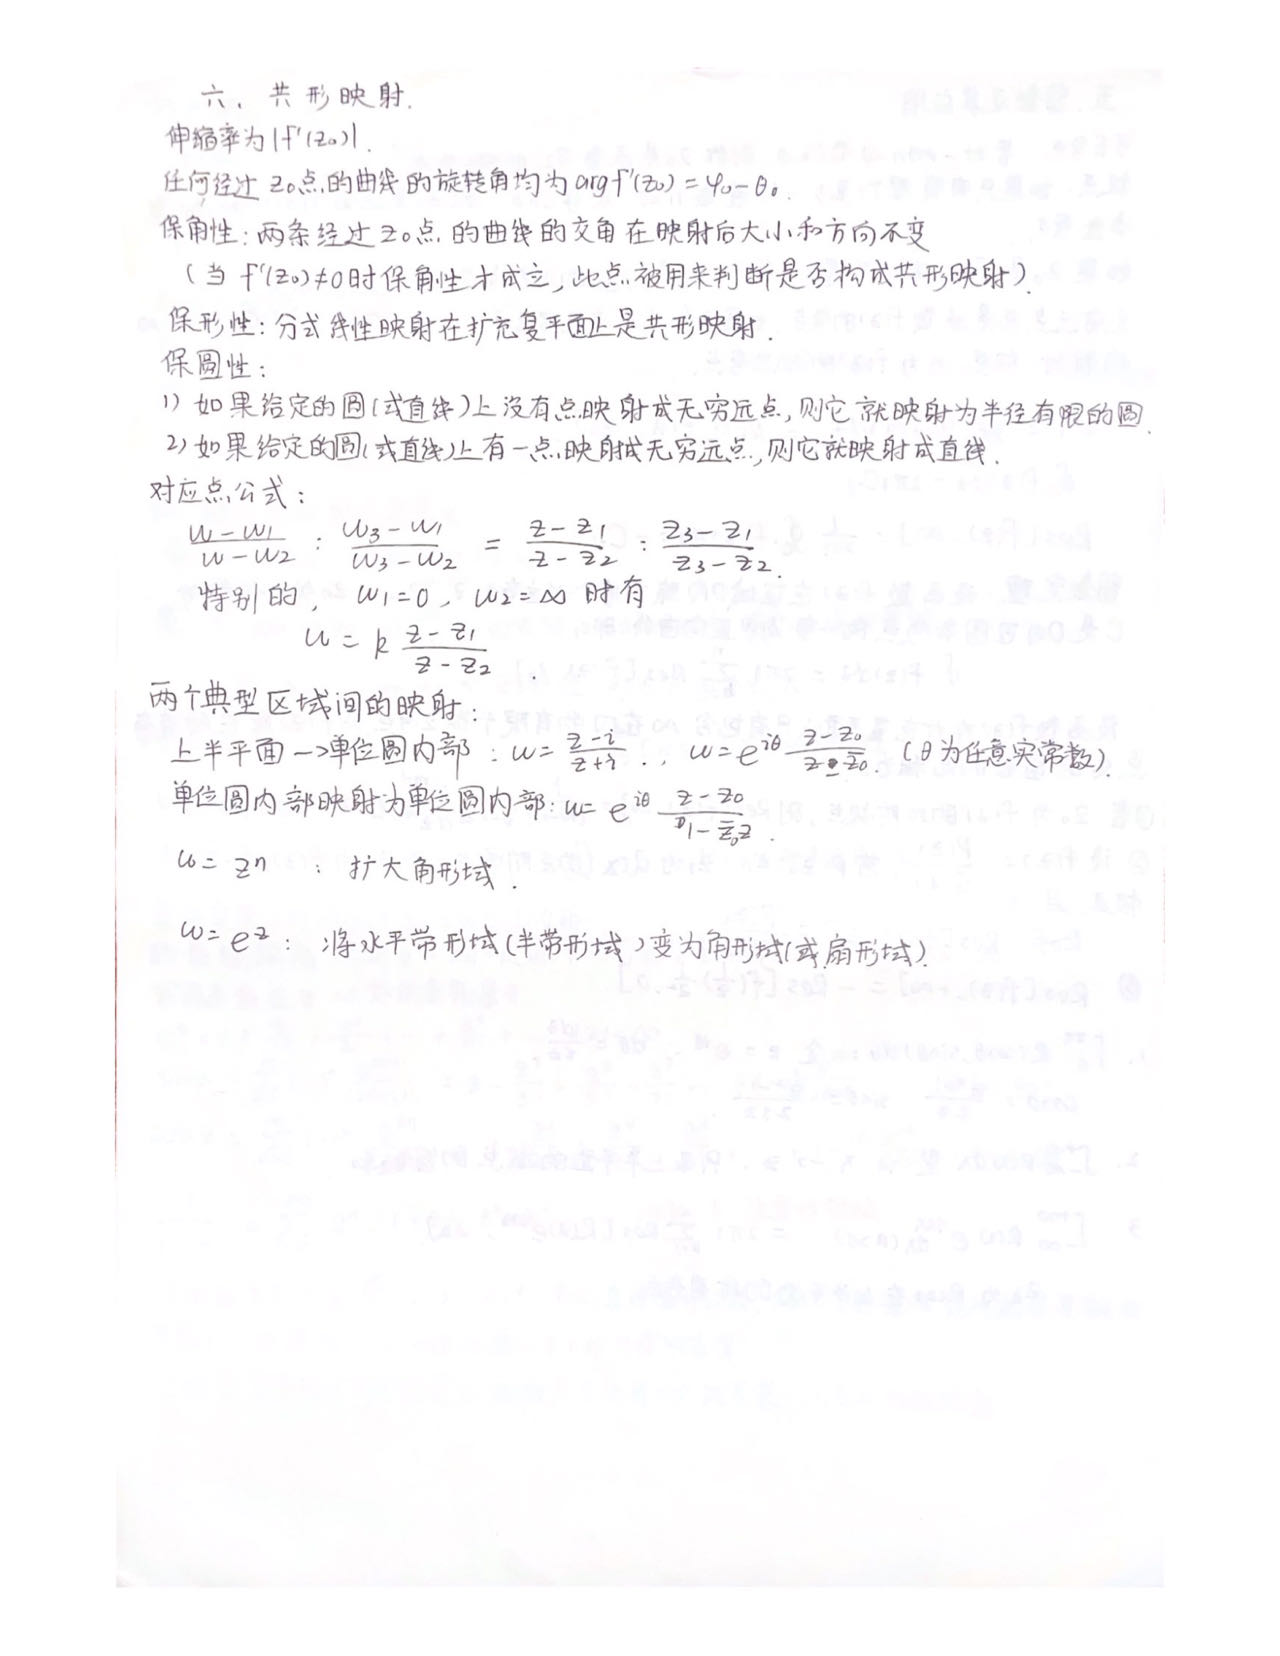 六、共形映射.
伸缩率为|f'(z₀)|.
任何经过 z₀点的曲线的旋转角均为arg f'(z₀)=φ₀-θ₀.
保角性:两条经过z₀点的曲线的交角在映射后大小和方向不变
(当 f'(z₀)≠0时保角性才成立,此点被用来判断是否构成共形映射).
保形性:分式线性映射在扩充复平面上是共形映射.
保圆性:
1) 如果给定的圆(或直线)上没有点映射成无穷远点,则它就映射为半径有限的圆.
2) 如果给定的圆(或直线)上有一点映射成无穷远点,则它就映射成直线.
对应点公式:
(w-w₁)/(w-w₂) : (w₃-w₁)/(w₃-w₂) = (z-z₁)/(z-z₂) : (z₃-z₁)/(z₃-z₂).
特别的, w₁=0, w₂=∞ 时有
w = k (z-z₁)/(z-z₂).
两个典型区域间的映射:
上半平面→单位圆内部: w=(z-i)/(z+i)., w=e^{iθ} (z-z₀)/(z-z̄₀). (θ为任意实常数).
单位圆内部映射为单位圆内部: w= e^{iθ} (z-z₀)/(1-z̄₀z).
w= zⁿ : 扩大角形域.
w= e^z : 将水平带形域(半带形域)变为角形域(或扇形域).